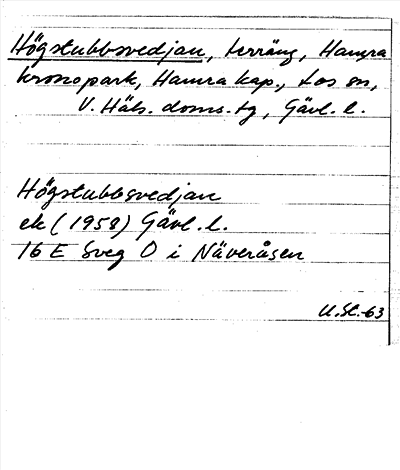 Högstubbsvedjan, terräng, Hamra
kronopark, Hamra kap., Los sn,
V. Häls. doms. tg, Gävl. l.
Högstubbsvedjan
ek (1958) Gävl. l.
16 E Sveg O i Näveråsen
U.St.-63